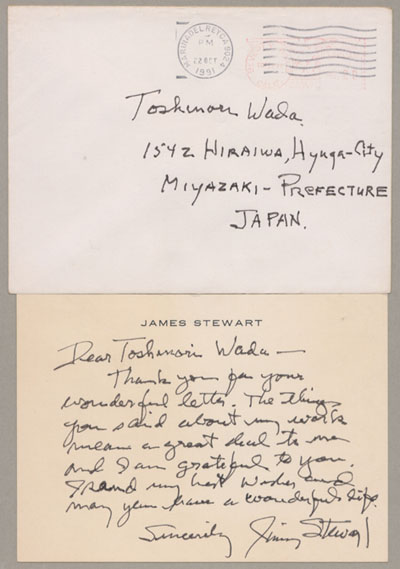 MARINA DEL REY CA 9029
PM
22 OCT
1991
Toshinori Wada.
1542 HIRAIWA, Hyuga-City
MIYAZAKI - PREFECTURE
JAPAN.
JAMES STEWART
Dear Toshinori Wada —
Thank you for your
wonderful letter. The things
you said about my work
mean a great deal to me
and I am grateful to you.
I send my best wishes and
may you have a wonderful life.
Sincerely Jimmy Stewart